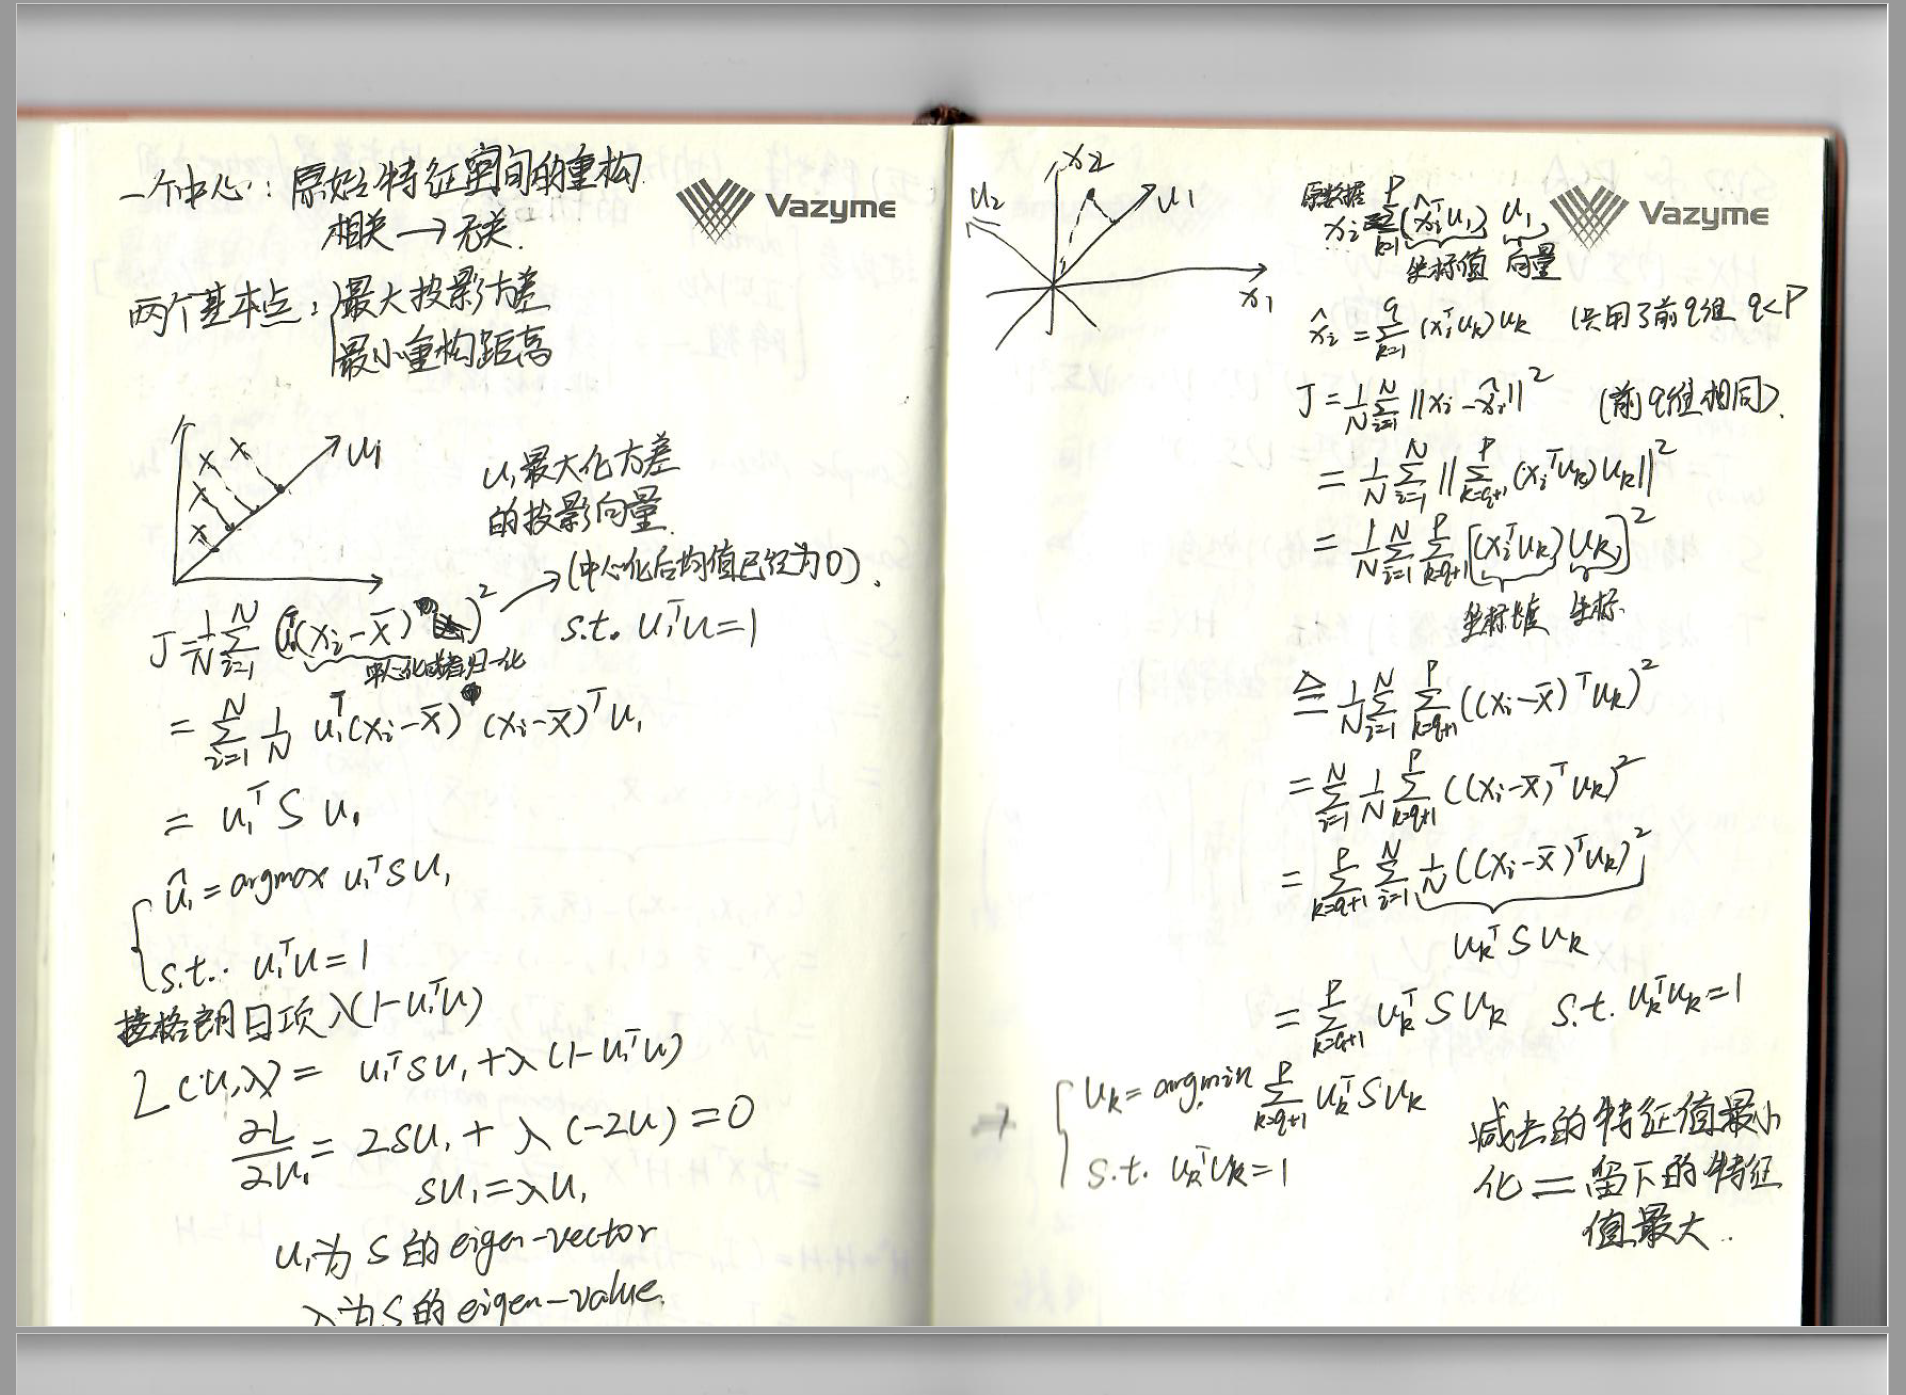 一个中心: 原始特征空间的重构
相关 → 无关.
Vazyme
两个基本点: 最大投影方差
最小重构距离
u₁
u₁最大化方差
的投影向量.
(中心化后均值已经为0).
J = 1/N Σ_{i=1}^N (u₁ᵀ(xᵢ-x̄))² s.t. u₁ᵀu=1
中心化或者归一化
= Σ_{i=1}^N 1/N u₁ᵀ(xᵢ-x̄) (xᵢ-x̄)ᵀu₁
= u₁ᵀ S u₁
û₁ = argmax u₁ᵀSu₁
s.t.: u₁ᵀu=1
格朗日项 λ(1-u₁ᵀu)
L(u,λ) = u₁ᵀSu₁+λ(1-u₁ᵀu)
∂L/∂u₁ = 2Su₁+ λ(-2u) = 0
Su₁=λu₁
u₁为 S 的 eigen-vector
λ为S的 eigen-value.
x₂
u₂
u₁
x₁
原数据
xᵢ = Σ_{k=1}^p (xᵢᵀu₁) u₁
坐标值 向量
Vazyme
x̂ᵢ = Σ_{k=1}^q (xᵢᵀuₖ)uₖ (只用了前q组 q<P
J = 1/N Σ_{i=1}^N ||xᵢ-x̂ᵢ||² (前q组相同).
= 1/N Σ_{i=1}^N ||Σ_{k=q+1}^p (xᵢᵀuₖ)uₖ||²
= 1/N Σ_{i=1}^N Σ_{k=q+1}^p [(xᵢᵀuₖ)uₖ]²
坐标值 坐标
≜ 1/N Σ_{i=1}^N Σ_{k=q+1}^p ((xᵢ-x̄)ᵀuₖ)²
= Σ_{i=1}^N 1/N Σ_{k=q+1}^p ((xᵢ-x̄)ᵀuₖ)²
= Σ_{k=q+1}^p Σ_{i=1}^N 1/N ((xᵢ-x̄)ᵀuₖ)²
uₖᵀSuₖ
= Σ_{k=q+1}^p uₖᵀSuₖ s.t. uₖᵀuₖ=1
uₖ = argmin Σ_{k=q+1}^p uₖᵀSuₖ
s.t. uₖᵀuₖ=1
减去的特征值最小
化 = 留下的特征
值最大.